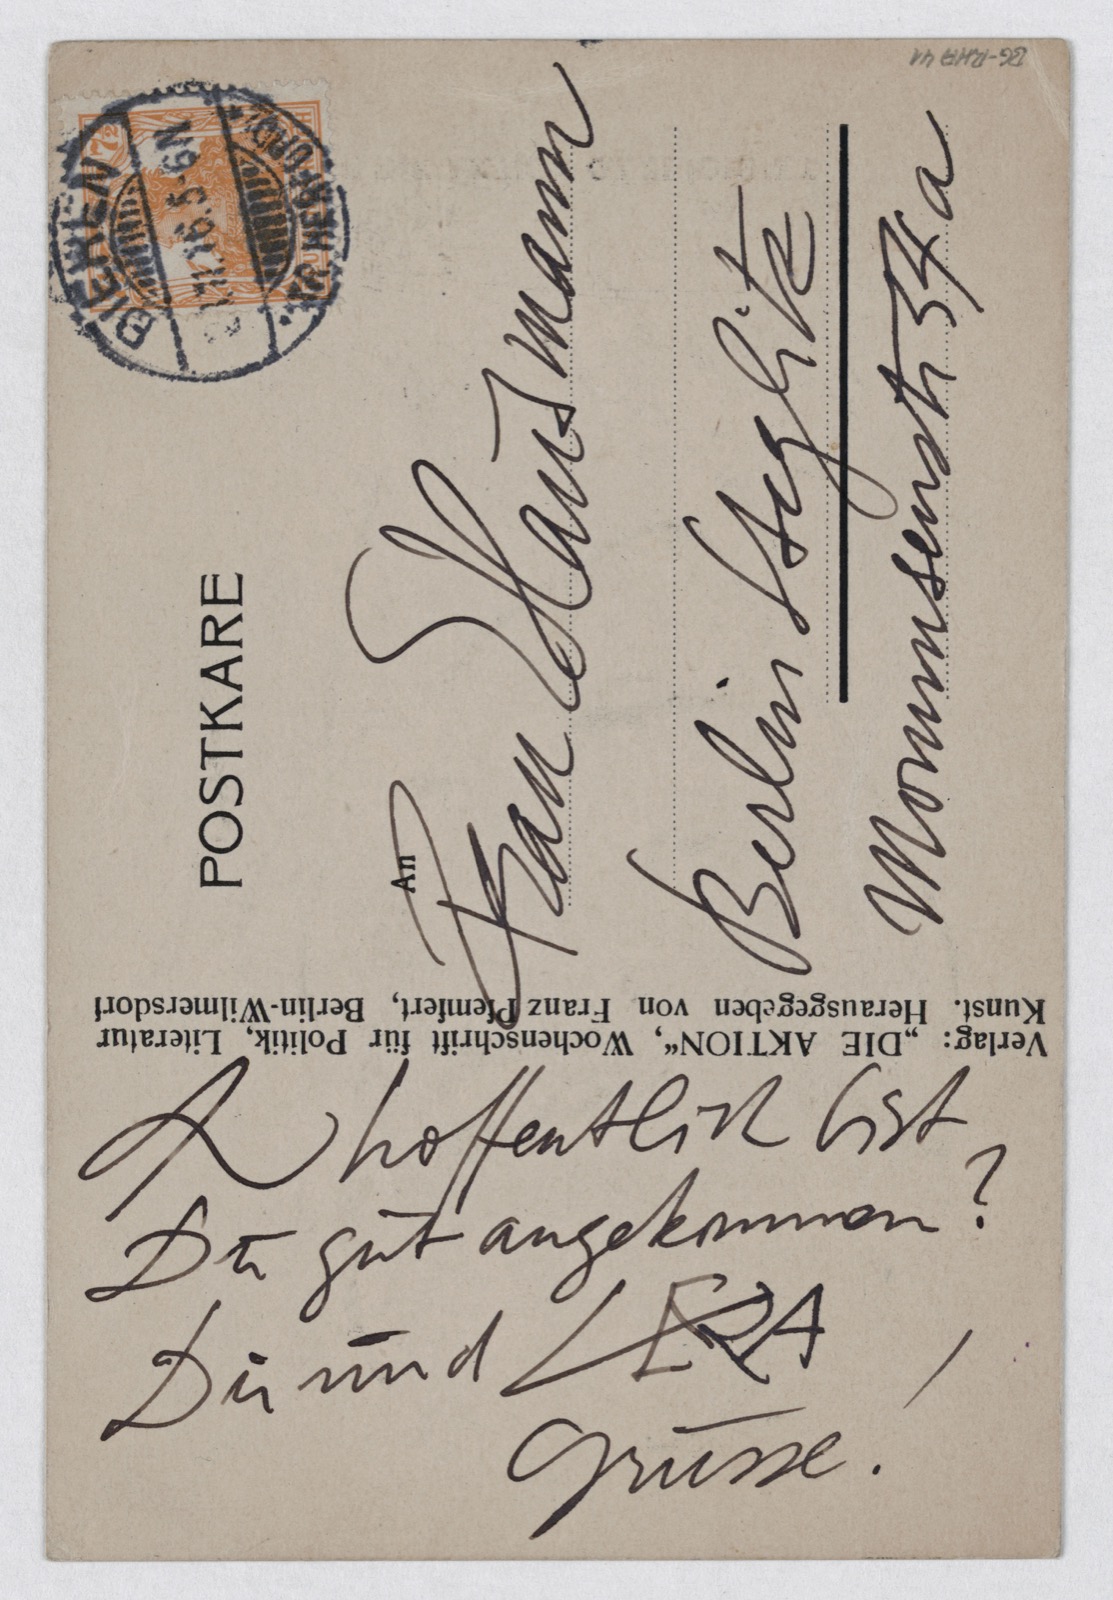 POSTKARE
An
Frau Hausmann
Berlin Steglitz
Mommsenstr. 34 a
Verlag: „DIE AKTION“, Wochenschrift für Politik, Literatur
Kunst. Herausgegeben von Franz Pfemfert, Berlin-Wilmersdorf
hoffentlich bist
Du gut angekommen?
Du und VERA
Grüsse.
5-6N
7½